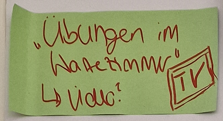 „Übungen im
Wartezimmer"
↳ Video?
TV